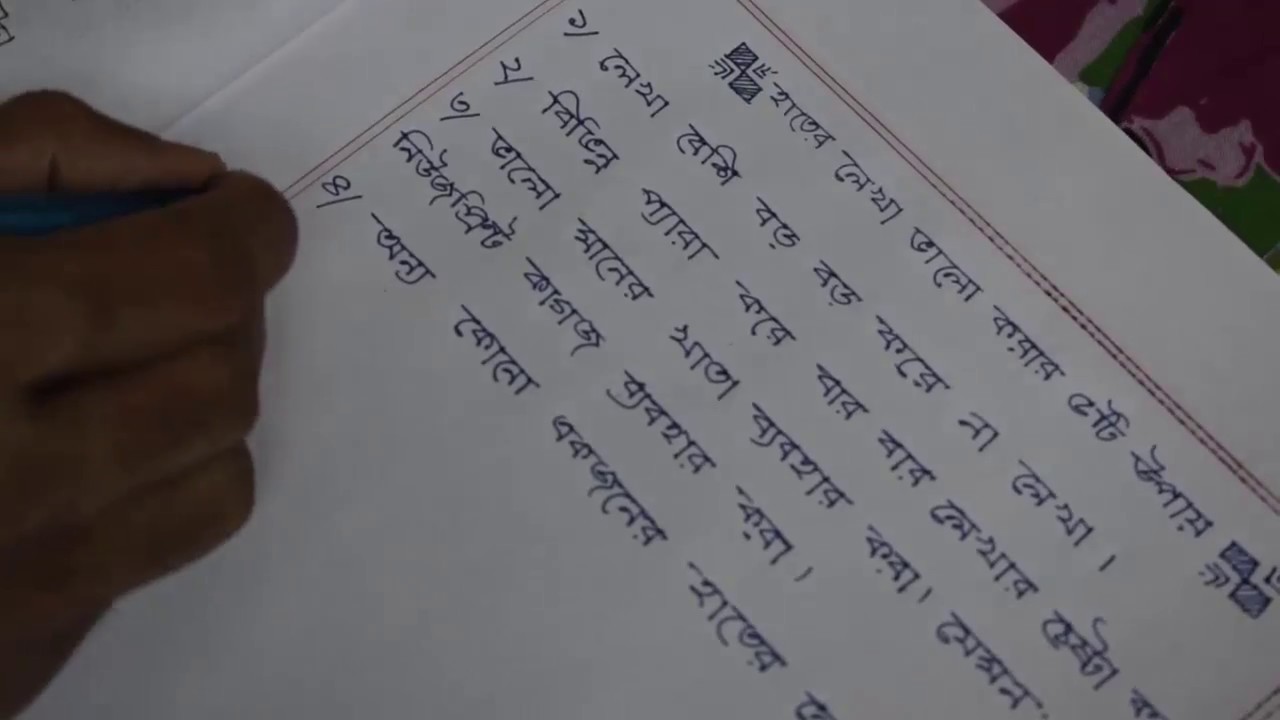 হাতের লেখা ভালো করার ৫টি উপায়
১/ লেখা বেশি বড় বড় করে না লেখা।
২/ বিভিন্ন প্যারা করে বার বার লেখার চেষ্টা
৩/ ভালো মানের খাতা ব্যবহার করা। যেমন
নিউজপ্রিন্ট কাগজ ব্যবহার করা।
৪/ অন্য কোনো একজনের হাতের